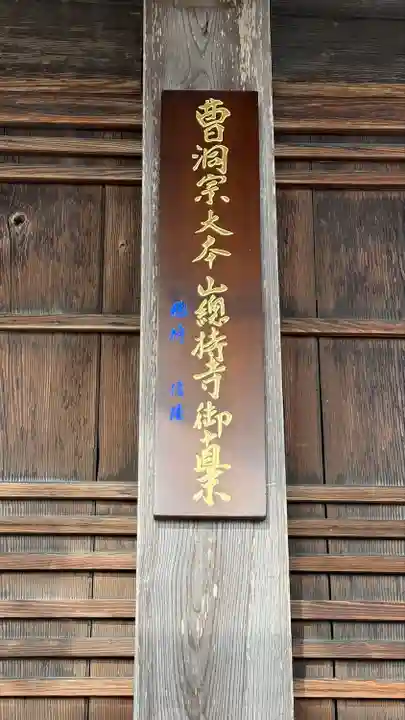 曹洞宗大本山總持寺御直末